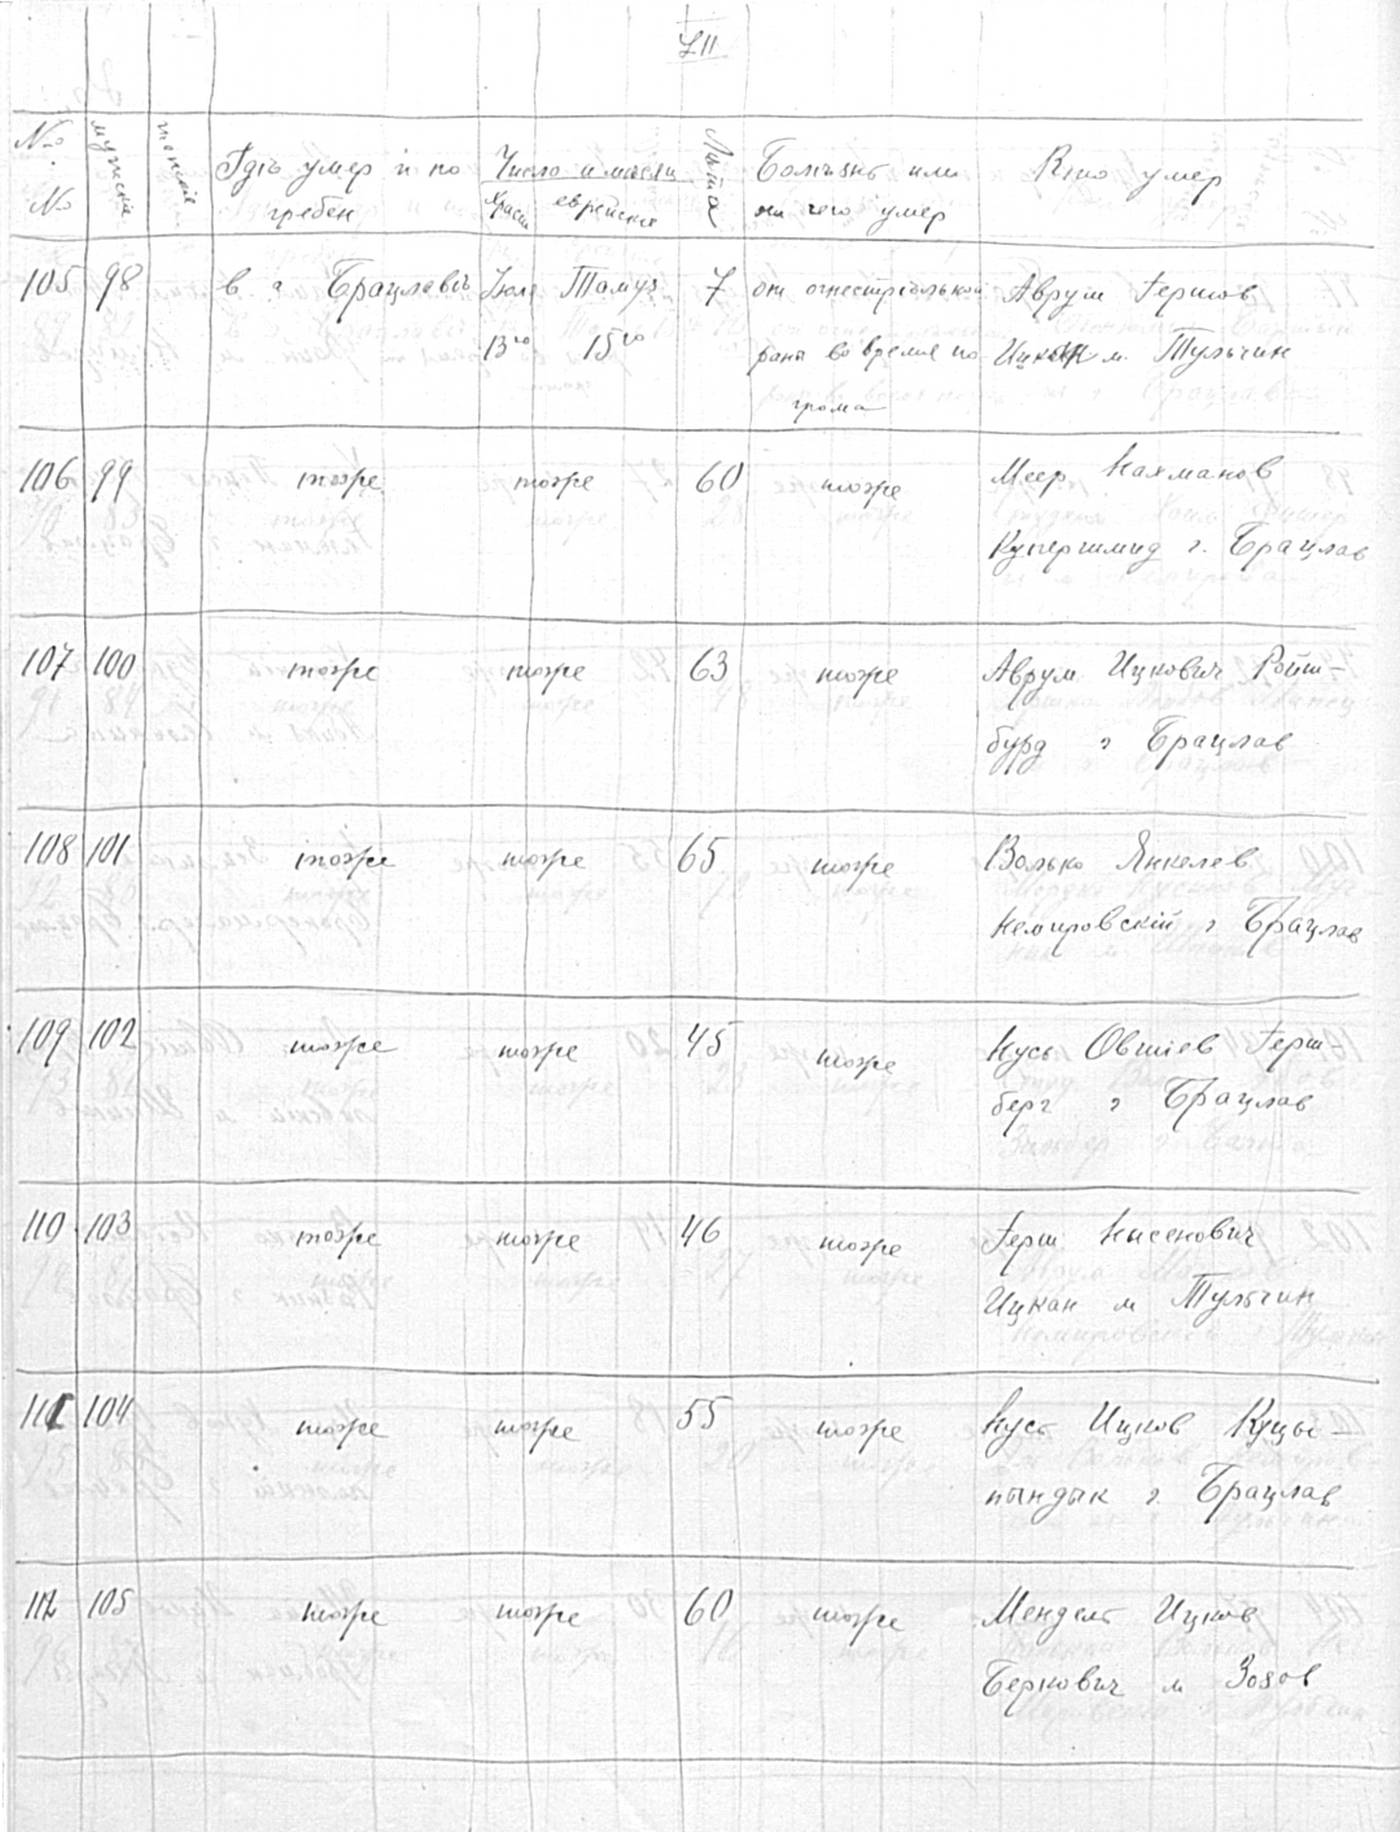 №
№
мужскіе
женскіе
Гдѣ умер и по
гребен
Число и мѣсяц
Христ
еврейскіе
Лѣта
Болѣзнь или
от чего умер
Кто умер
105 98 в г Брацлавѣ Іюля Тамуз 7 от огнестрѣльной Аврум Гершов
13го 15го раны во время по Ицкан м. Тульчин
грома
106 99 тоже тоже 60 тоже Меер Нахманов
Купершмид г. Брацлав
107 100 тоже тоже 63 тоже Аврум Ицкович Ройт-
бурд г Брацлав
108 101 тоже тоже 65 тоже Волько Янкелев
Немировскій г Брацлав
109 102 тоже тоже 45 тоже Нусь Овшіев Герш-
берг г Брацлав
110 103 тоже тоже 46 тоже Герш Нисенович
Ицкан м Тульчин
111 104 тоже тоже 55 тоже Нусь Ицков Куцы-
пындык г. Брацлав
112 105 тоже тоже 60 тоже Мендель Ицков
Беркович м Зозов